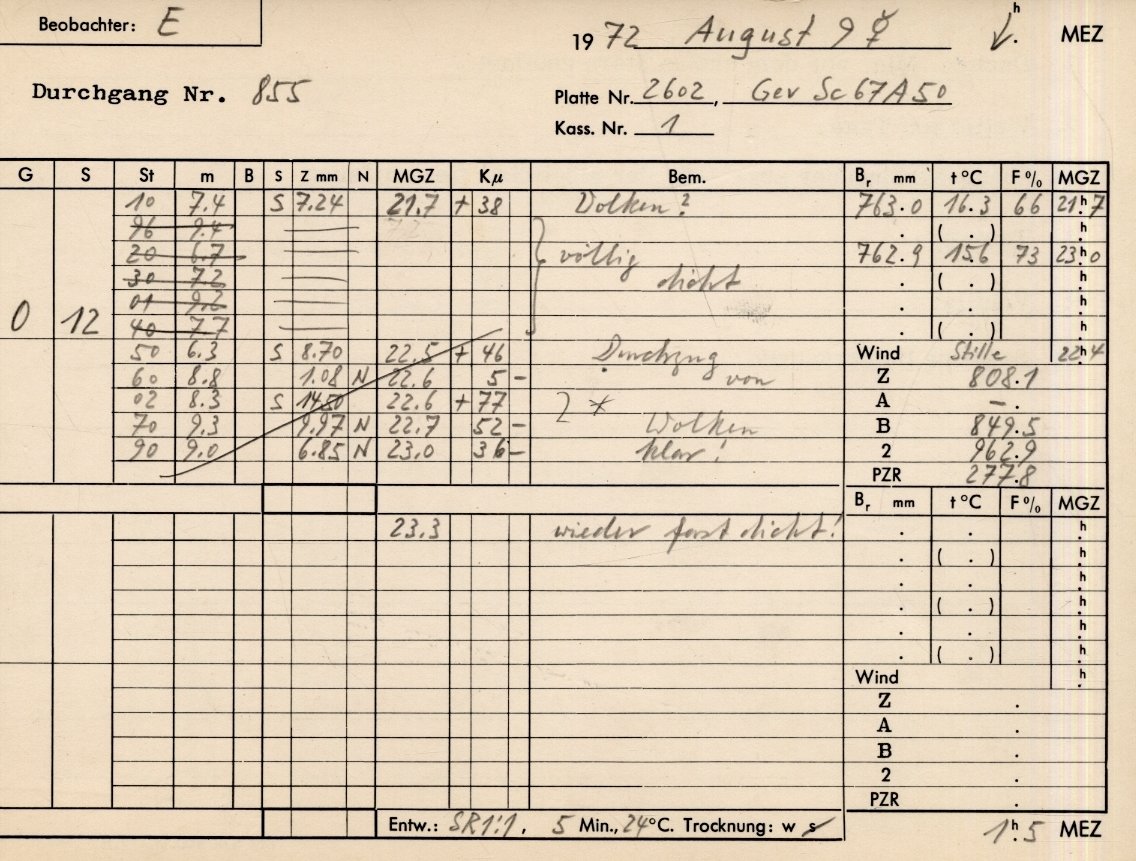 Beobachter: E
1972 August 9 ☿ h. MEZ
Durchgang Nr. 855
Platte Nr. 2602, Gev Sc67A50
Kass. Nr. 1
G S St m B S Z mm N MGZ Kμ Bem. Br mm t°C F% MGZ
10 7.4 S 7.24 21.7 + 38 Wolken? 763.0 16.3 66 21h7
96 9.4 . ( . ) h.
20 6.7 völlig 762.9 15.6 73 23h0
30 7.2 dicht . ( . ) h.
01 9.2 . . h.
0 12 40 7.7 . ( . ) h.
50 6.3 S 8.70 22.5 + 46 Durchzug Wind Stille 22h4
60 8.8 1.08 N 22.6 5 – von Z 808.1
02 8.3 S 14.50 22.6 + 77 2 * A – .
70 9.3 9.97 N 22.7 52 – Wolken B 849.5
90 9.0 6.85 N 23.0 36 – klar! 2 962.9
PZR 277.8
Br mm t°C F% MGZ
23.3 wieder fast dicht! . . h.
. ( . ) h.
. . h.
. ( . ) h.
. . h.
. ( . ) h.
Wind h.
Z .
A .
B .
2 .
PZR .
Entw.: SR1:1, 5 Min., 24°C. Trocknung: w s 1h.5 MEZ